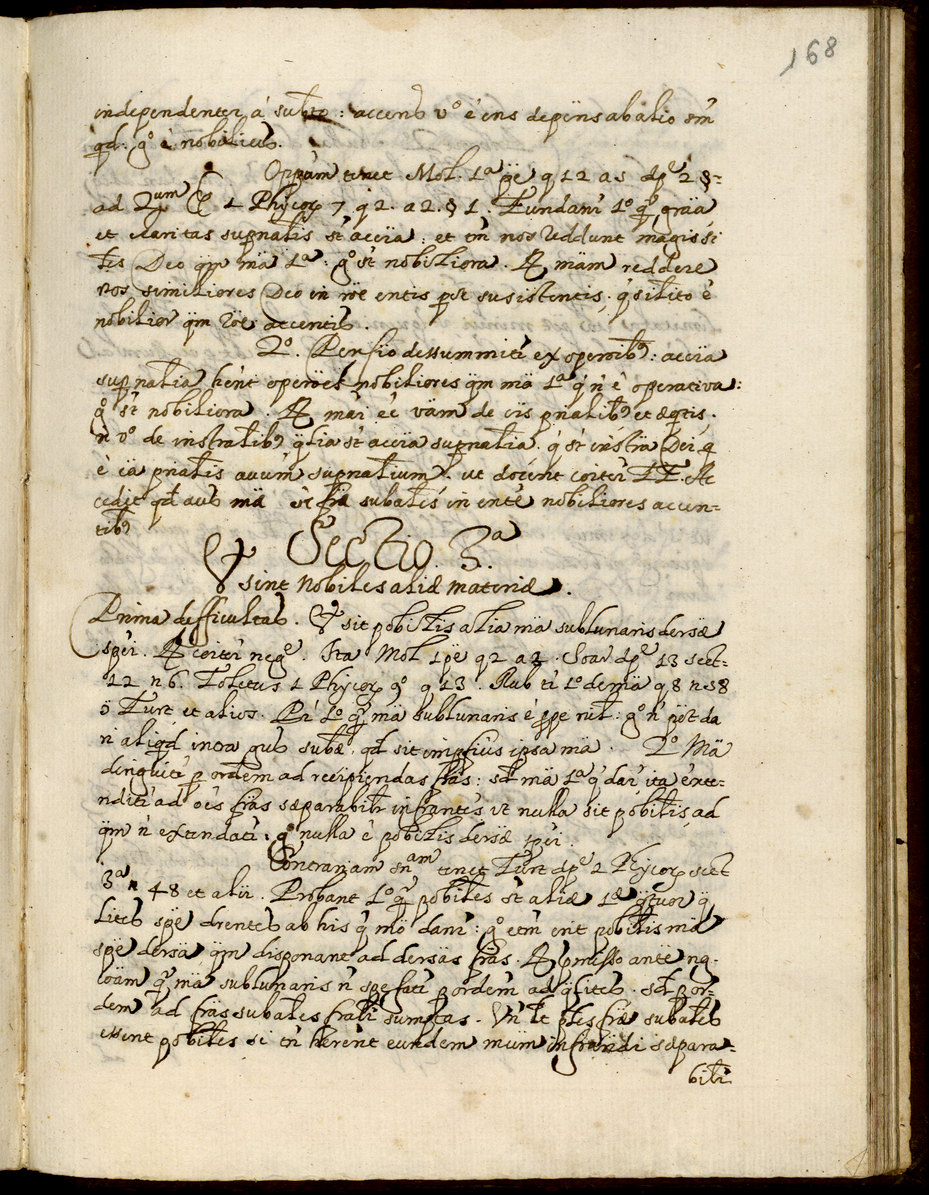 168
independenter á subto : accens vº é ens depēns ab alio om̃
qd. gº é nobilius.
Oppūm tenet Mol. 1ª pē q 12 a s dpᵉ 2 §-
ad 2um & 1 Phycor 7 q 2. a 2. § 1. Fundanr 1º q graā
et caritas supnalis st accīa : et tn̄ nos reddunt magis si
tes Deo qm mā 1ª : gº st nobiliora . R mām reddere
nos similiores Deo in roē entis pse susistentis, q silito é
nobilior qm roē accentis.
2º. Perfio dessummiti ex operoibꝰ : accīa
supnatia hent operoēs nobiliores qm mā 1ª q n é operativa :
gº st nobiliora . R māi eē vām de iis pnatibꝰ et aeqtis.
n vº de instratibꝰ qlia st accīa supnatia . q st instrā Dei, q
é cā pnatis avum supnatium . ut docent coiter TT. Ac
cedit qd aus mā et frā subales in ente nobiliores accen-
tibꝰ
Sectio. 3ª
sint nobiles aliæ materiæ .
Prima difficultas . sit pobilis alia mā sublunaris dersæ
spēi . R coiter negᵉ . Ita Mol 1 pē q 2 a 2 . Soar dpᵉ 13 sect-
12 n 6. Toletus 1 Phycor gº q 13 . Rub ti 1º de mā q 8 n 58
ō Furt et alios. Pr 1º q mā sublunaris é ppe nil : gº n pōt da
ri aliqd infra gus subæ , qd sit impfius ipsa mā . 2º. Mā
dinguiti p ordem ad recipiendas frās : sd mā 1ª q dar, ita exte-
nditi ad oēs frās separabilr infrantes ut nulla sit pobilis, ad
qm n extendati : gº nulla é pobilis dersæ spēi .
Contrariam snam tenet Furt dpᵉ 1 Phycor sect
3ª n 48 et alii . Probant 1º q pobiles st aliæ 1æ qtuor q
lites spē drentes ab his q mō danr : gº etm erit pobilis mā
spē dersā qm disponant ad dersās frās . R pmisso antē ng.
loām q mā sublunaris n spe fati p ordem ad qlites . sd p or-
dem ad frās subales frali sumptas . Vn lt ples frāe subales
essent pobiles si tn herent eundem mūm infrandi separa-
bili